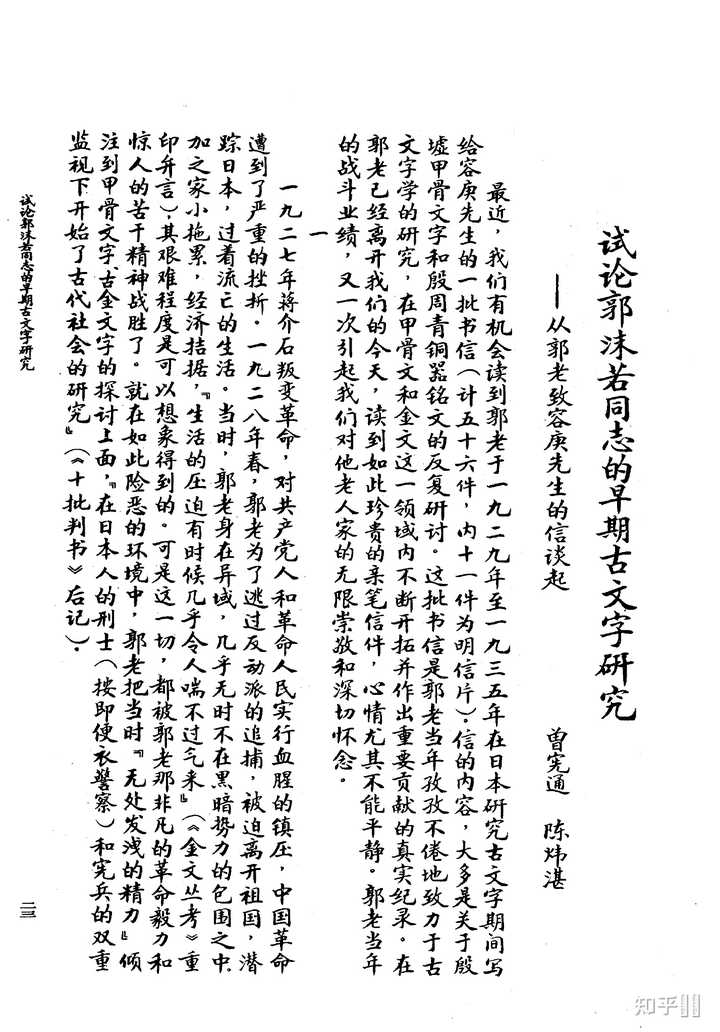 试论郭沫若同志的早期古文字研究
——从郭老致容庚先生的信谈起
曾宪通　陈炜湛
最近，我们有机会读到郭老于一九二九年至一九三五年在日本研究古文字期间写
给容庚先生的一批书信（计五十六件，内十一件为明信片）。信的内容，大多是关于殷
墟甲骨文字和殷周青铜器铭文的反复研讨。这批书信是郭老当年孜孜不倦地致力于古
文字学的研究，在甲骨文和金文这一领域内不断开拓并作出重要贡献的真实纪录。在
郭老已经离开我们的今天，读到如此珍贵的亲笔信件，心情尤其不能平静。郭老当年
的战斗业绩，又一次引起我们对他老人家的无限崇敬和深切怀念。
一
一九二七年蒋介石叛变革命，对共产党人和革命人民实行血腥的镇压，中国革命
遭到了严重的挫折。一九二八年春，郭老为了逃过反动派的追捕，被迫离开祖国，潜
踪日本，过着流亡的生活。当时，郭老身在异域，几乎无时不在黑暗势力的包围之中，
加之家小拖累，经济拮据，『生活的压迫有时候几乎令人喘不过气来』（《金文丛考》重
印弁言），其艰难程度是可以想象得到的。可是这一切，都被郭老那非凡的革命毅力和
惊人的苦干精神战胜了。就在如此险恶的环境中，郭老把当时『无处发洩的精力』倾
注到甲骨文字、古金文字的探讨上面，『在日本人的刑士（按即便衣警察）和宪兵的双重
监视下开始了古代社会的研究』（《十批判书》后记）。
试论郭沫若同志的早期古文字研究
二三
知乎